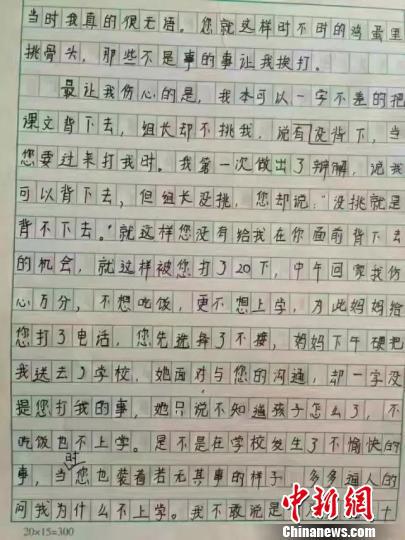 当时我真的很无语。您就这样时不时的鸡蛋里
挑骨头，那些不是事的事让我挨打。
最让我伤心的是，我本可以一字不差的把
课文背下去，组长却不挑我，说有没背下，当
您要过来打我时。我第一次做出了辩解，说我
可以背下去，但组长没挑，您却说："没挑就是
背不下去。"就这样您没有给我在你面前背下去
的机会，就这样被您打了20下，中午回家我伤
心万分，不想吃饭，更不想上学，为此妈妈给
您打了电话，您先选择了不接，妈妈下午硬把
我送去了学校，她面对与您的沟通，却一字没
提您打我的事，她只说不知道孩子怎么了，不
吃饭也不上学。是不是在学校发生了不愉快的
事，当时您也装着若无其事的样子，多多逼人的
问我为什么不上学。我不敢说是
20×15=300
中新网
Chinanews.com